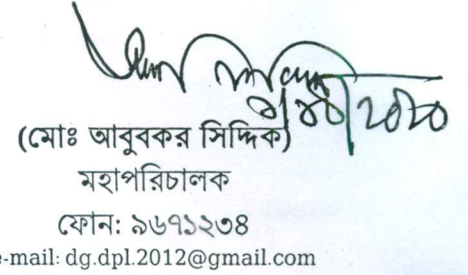 (মোঃ আবুবকর সিদ্দিক)
মহাপরিচালক
ফোন: ৯৬৭১২৩৪
e-mail: dg.dpl.2012@gmail.com